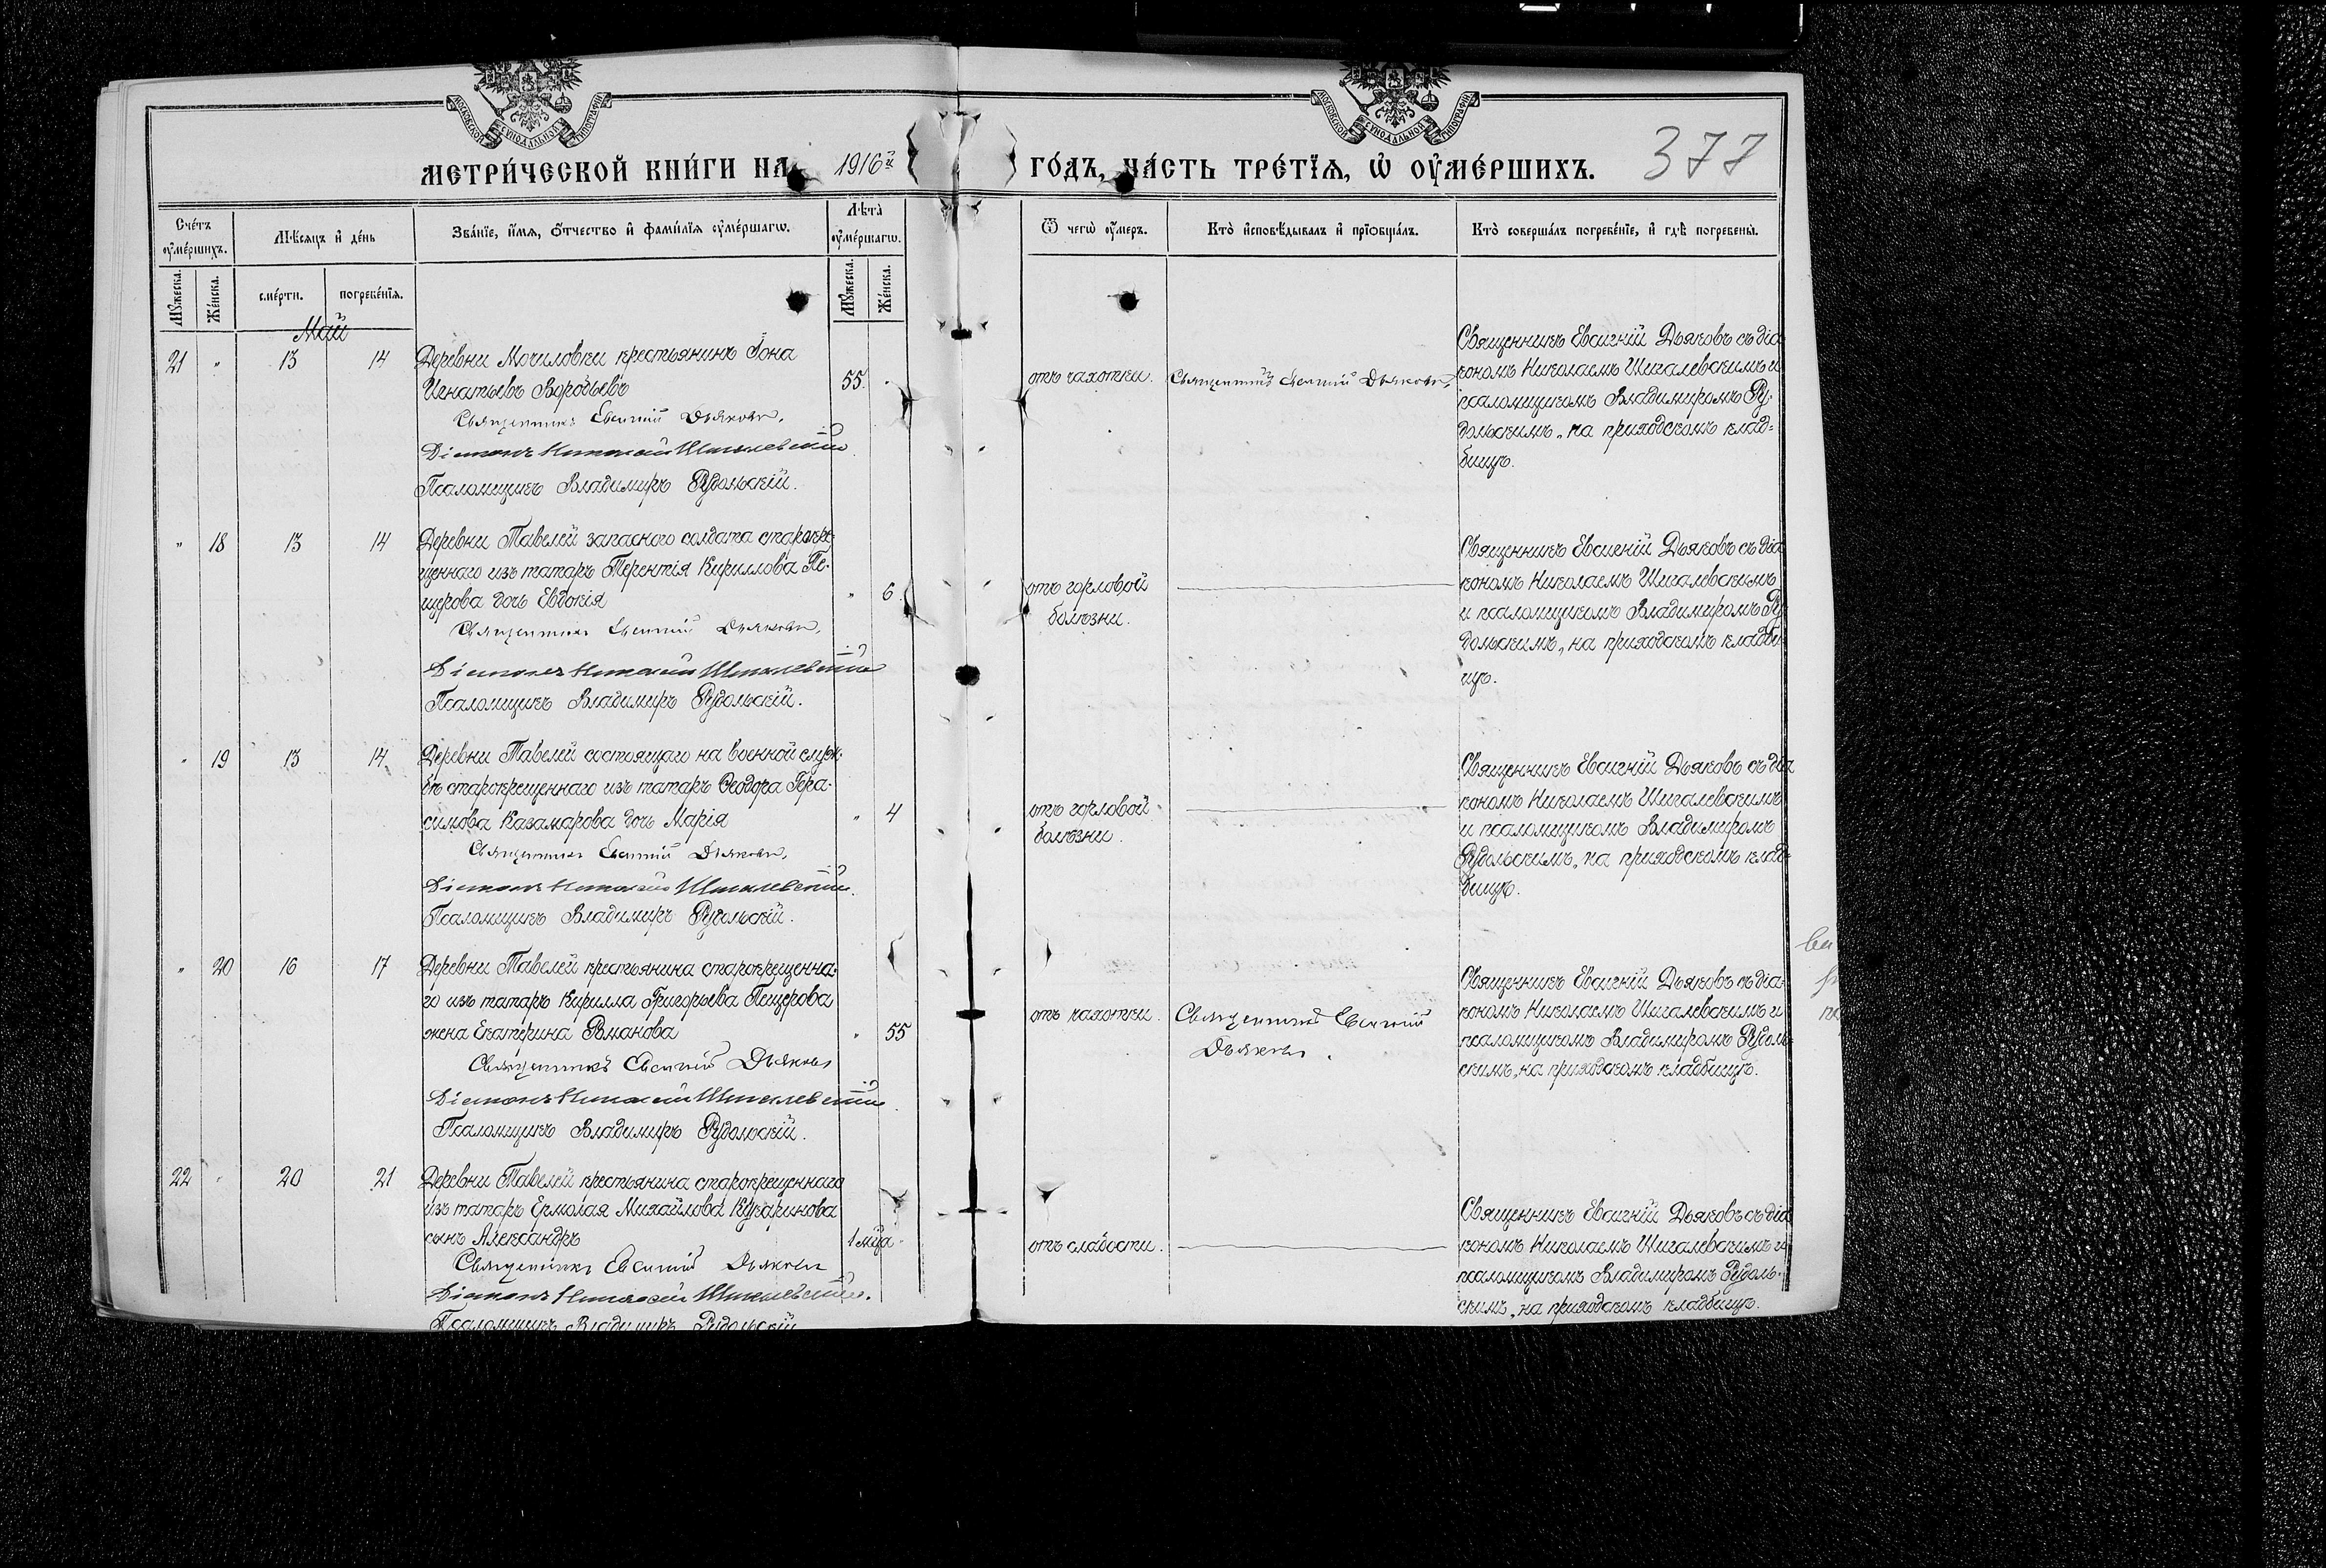 МОСКОВСКОЙ СУНОДАЛЬНОЙ ТИПОГРАФІИ
МОСКОВСКОЙ СУНОДАЛЬНОЙ ТИПОГРАФІИ
МЕТРИ́ЧЕСКОЙ КНИ́ГИ НА 1916й ГО́ДЪ, ЧА́СТЬ ТРЕ́ТЇѦ, Ѡ҆ ОУ҆МЕ́РШИХЪ. 377
Сче́тъ оу҆ме́ршихъ.
Мꙋ́жеска.
Же́нска.
Мѣ́сяцъ и҆ де́нь
сме́рти.
погребе́нїѧ.
Зва́нїе, и҆́мѧ, ѻ҆́тчество и҆ фами́лїѧ оу҆ме́ршагѡ.
Лѣта̀ оу҆ме́ршагѡ.
Мꙋ́жеска.
Же́нска.
Ѿ чегѡ̀ оу҆́меръ.
Кто̀ и҆сповѣ́дывалъ и҆ прїѡбща́лъ.
Кто̀ соверша́лъ погребе́нїе, и҆ гдѣ̀ погребены̀.
Май
21 " 13 14
Деревни Мочиловки крестьянинъ Іона
Игнатьевъ Воробьевъ
Священникъ Евгений Дьяковъ.
Діаконъ Николай Шигалевский
Псаломщикъ Владимиръ Рудольскій.
55. "
отъ чахотки.
Священникъ Евгений Дьяковъ.
Священникъ Евгеній Дьяковъ съ діа
кономъ Николаемъ Шигалевскимъ и
псаломщикомъ Владимиромъ Ру-
дольскимъ, на приходскомъ клад-
бищѣ.
" 18 13 14
Деревни Тавелей запаснаго солдата старокре-
щеннаго изъ татаръ Терентія Кириллова Пе-
щерова дочь Евдокія
Священникъ Евгений Дьяковъ.
Діаконъ Николай Шигалевский
Псаломщикъ Владимиръ Рудольскій.
" 6.
отъ горловой
болѣзни.
Священникъ Евгеній Дьяковъ съ діа
кономъ Николаемъ Шигалевскимъ
и псаломщикомъ Владимиромъ Ру
дольскимъ, на приходскомъ кладби-
щѣ.
" 19 13 14
Деревни Тавелей состоящаго на военной служ-
бѣ старокрещеннаго изъ татаръ Ѳеодора Гера-
симова Казамарова дочь Марія
Священникъ Евгений Дьяковъ.
Діаконъ Николай Шигалевский.
Псаломщикъ Владимиръ Рудольскій.
" 4
отъ горловой
болѣзни.
Священникъ Евгеній Дьяковъ съ діа
кономъ Николаемъ Шигалевскимъ
и псаломщикомъ Владимиромъ
Рудольскимъ, на приходскомъ клад-
бищѣ.
" 20 16 17
Деревни Тавелей крестьянина старокрещенна-
го изъ татаръ Кирилла Григорьева Пещерова
жена Екатерина Романова
Священникъ Евгений Дьяковъ
Діаконъ Николай Шигалевский.
Псаломщикъ Владимиръ Рудольскій.
" 55
отъ чахотки.
Священникъ Евгений
Дьяковъ.
Священникъ Евгеній Дьяковъ съ діа-
кономъ Николаемъ Шигалевскимъ и
псаломщикомъ Владимиромъ Рудоль-
скимъ, на приходскомъ кладбищѣ.
22 " 20 21
Деревни Тавелей крестьянина старокрещеннаго
изъ татаръ Ермолая Михайлова
сынъ Александръ
Священникъ Евгений Дьяковъ
Діаконъ Николай Шигалевский.
Псаломщикъ Владимиръ Рудольскій
1 мѣца "
отъ слабости.
Священникъ Евгеній Дьяковъ съ діа
кономъ Николаемъ Шигалевскимъ и
псаломщикомъ Владимиромъ Рудоль-
скимъ, на приходскомъ кладбищѣ.